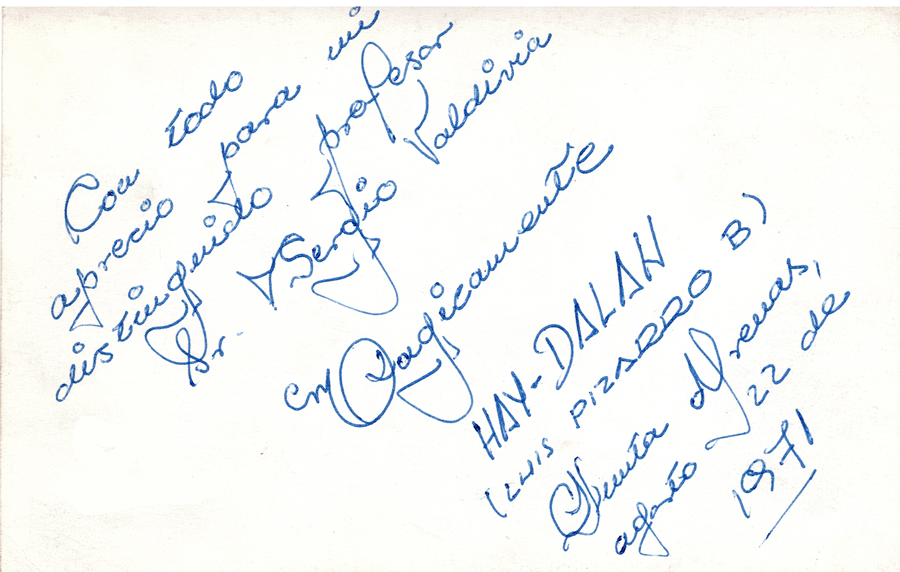 Con todo
aprecio para mi
distinguido profesor
Sr. Sergio Valdivia
Magicamente
HAY-DALAH
(LUIS PIZARRO B)
Punta Arenas,
agosto 22 de
1971